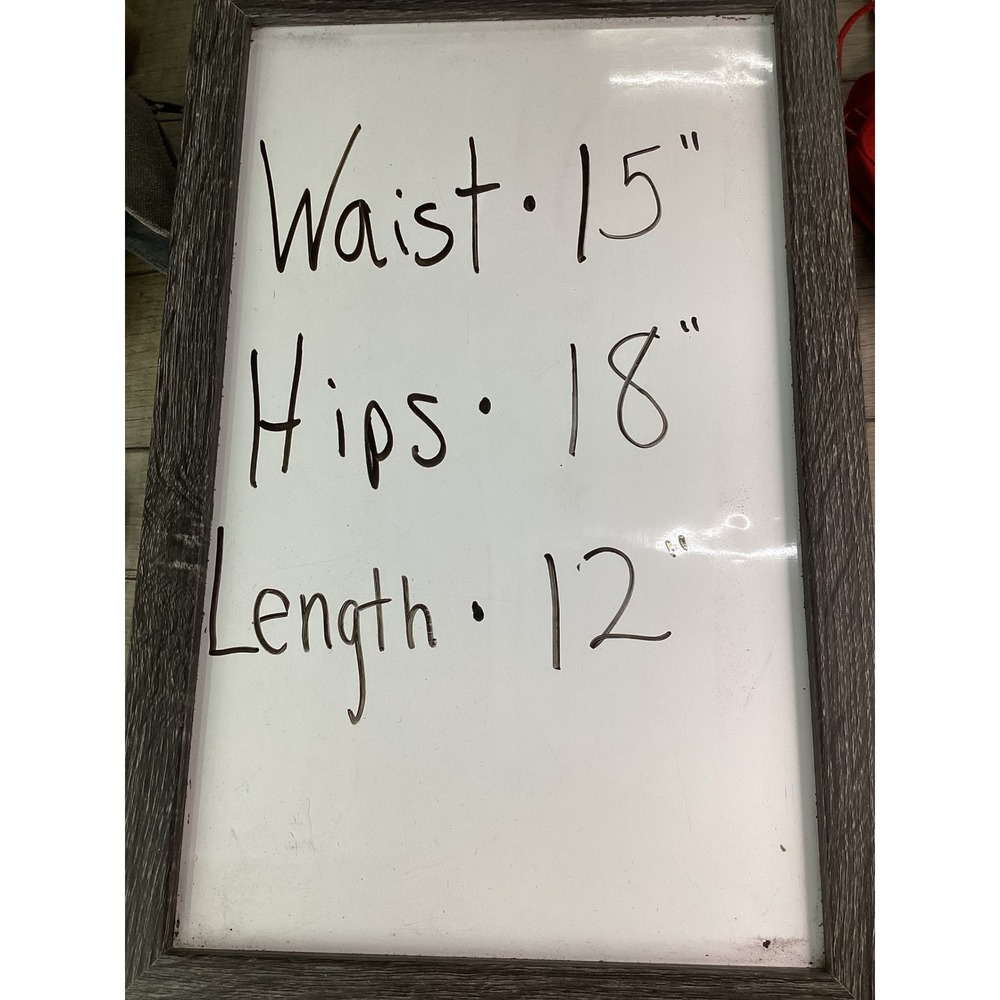 Waist · 15"
Hips · 18"
Length · 12"